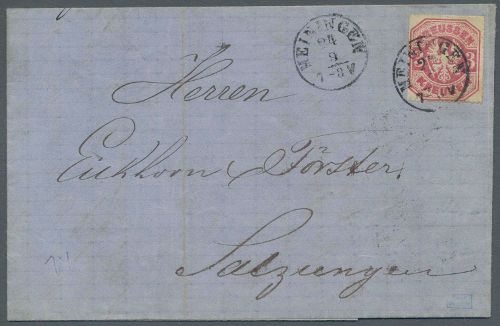 MEININGEN
24
9
7-8V
PREUSSEN
MEININGEN
Herren
Eickhorn & Förster.
Salzungen